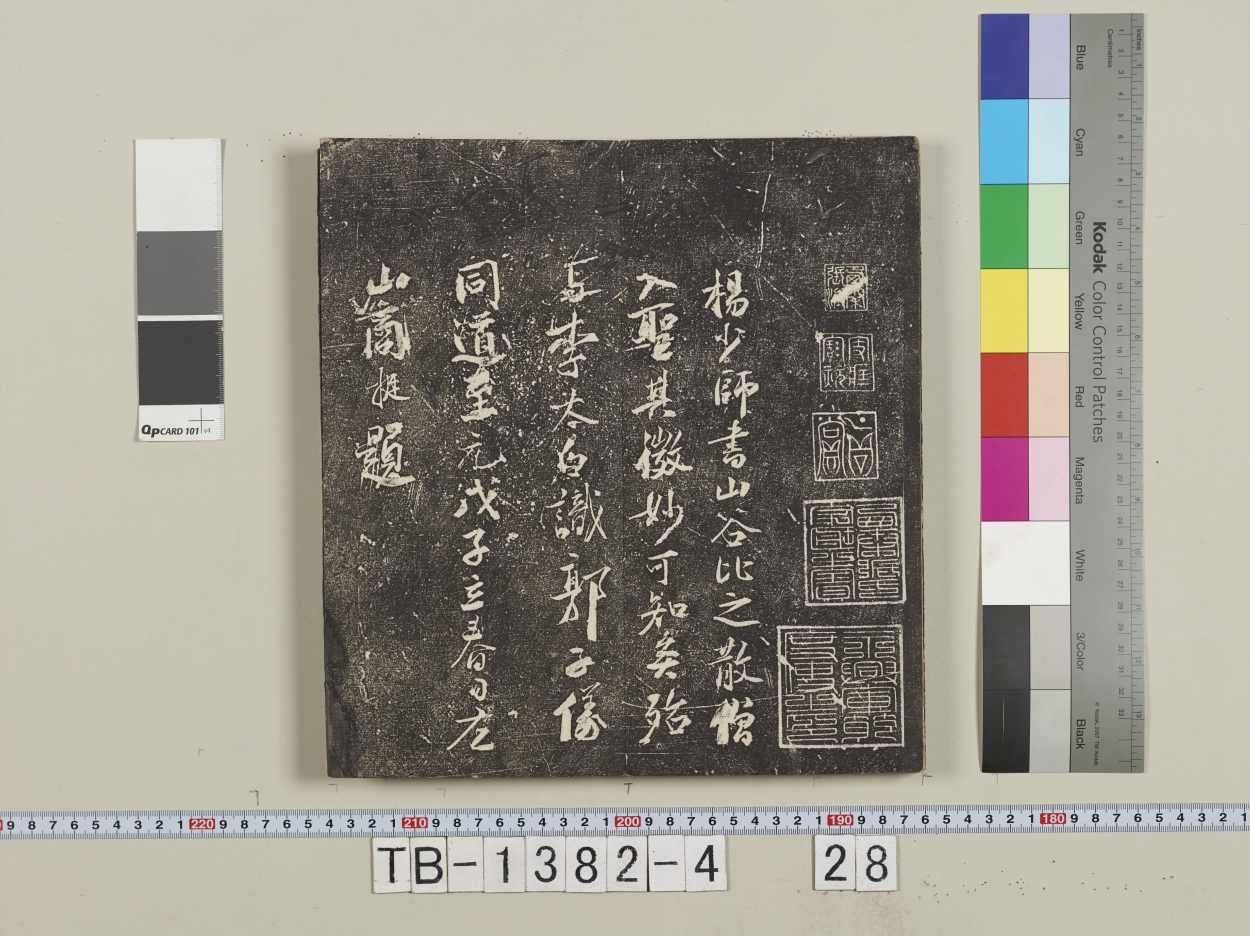 楊少師書山谷比之散僧
入聖其微妙可知矣殆
與李太白識郭子儀
同道至元戊子立春日左
山商挺題
TB-1382-4 28
QPCARD 101 v4
Kodak Color Control Patches
Blue
Cyan
Green
Yellow
Red
Magenta
White
3/Color
Black
Inches
Centimetres
© Kodak, 2007 TM: Kodak
9 8 7 6 5 4 3 2 1 220 9 8 7 6 5 4 3 2 1 210 9 8 7 6 5 4 3 2 1 200 9 8 7 6 5 4 3 2 1 190 9 8 7 6 5 4 3 2 1 180 9 8 7 6 5 4 3 2 1